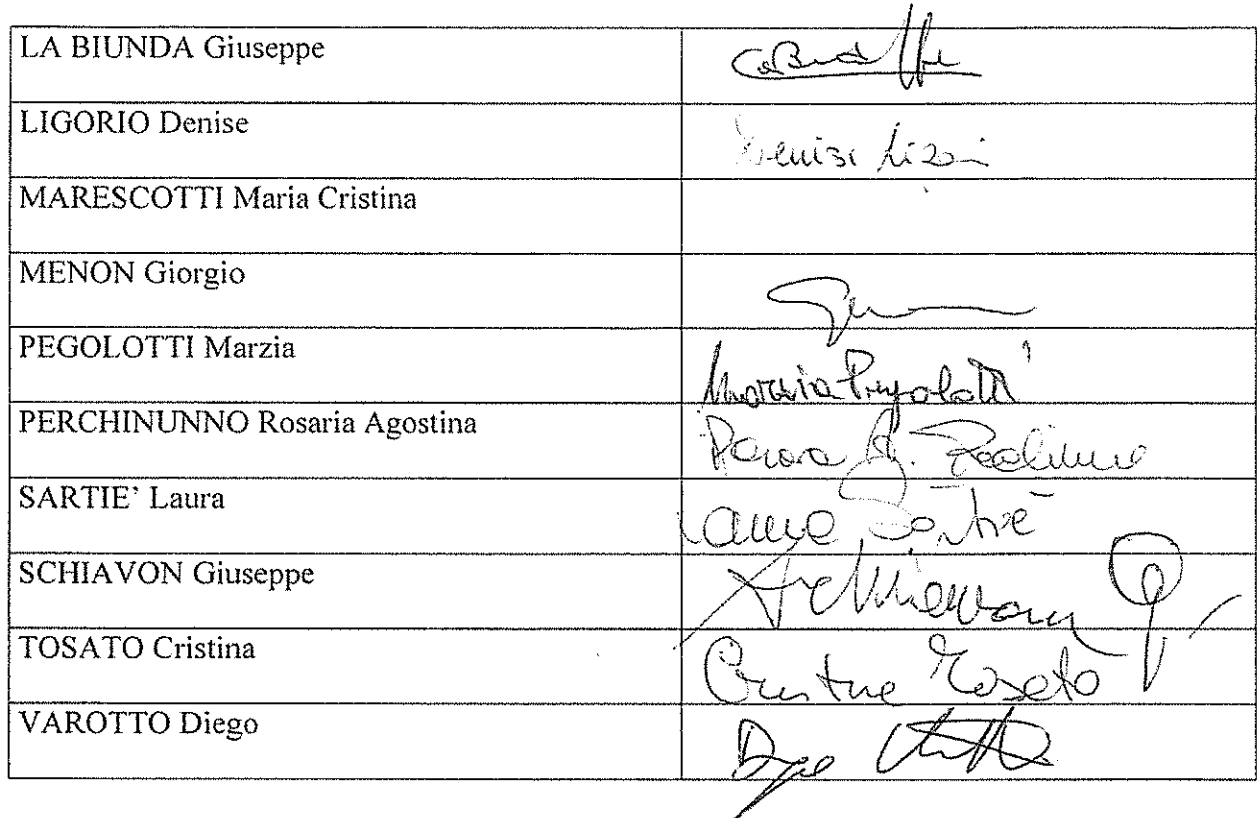 LA BIUNDA Giuseppe
LIGORIO Denise
Denise
MARESCOTTI Maria Cristina
MENON Giorgio
PEGOLOTTI Marzia
Marzia Pegolotti
PERCHINUNNO Rosaria Agostina
SARTIE’ Laura
Laura Sartiè
SCHIAVON Giuseppe
Schiavon G.
TOSATO Cristina
Cristina Tosato
VAROTTO Diego